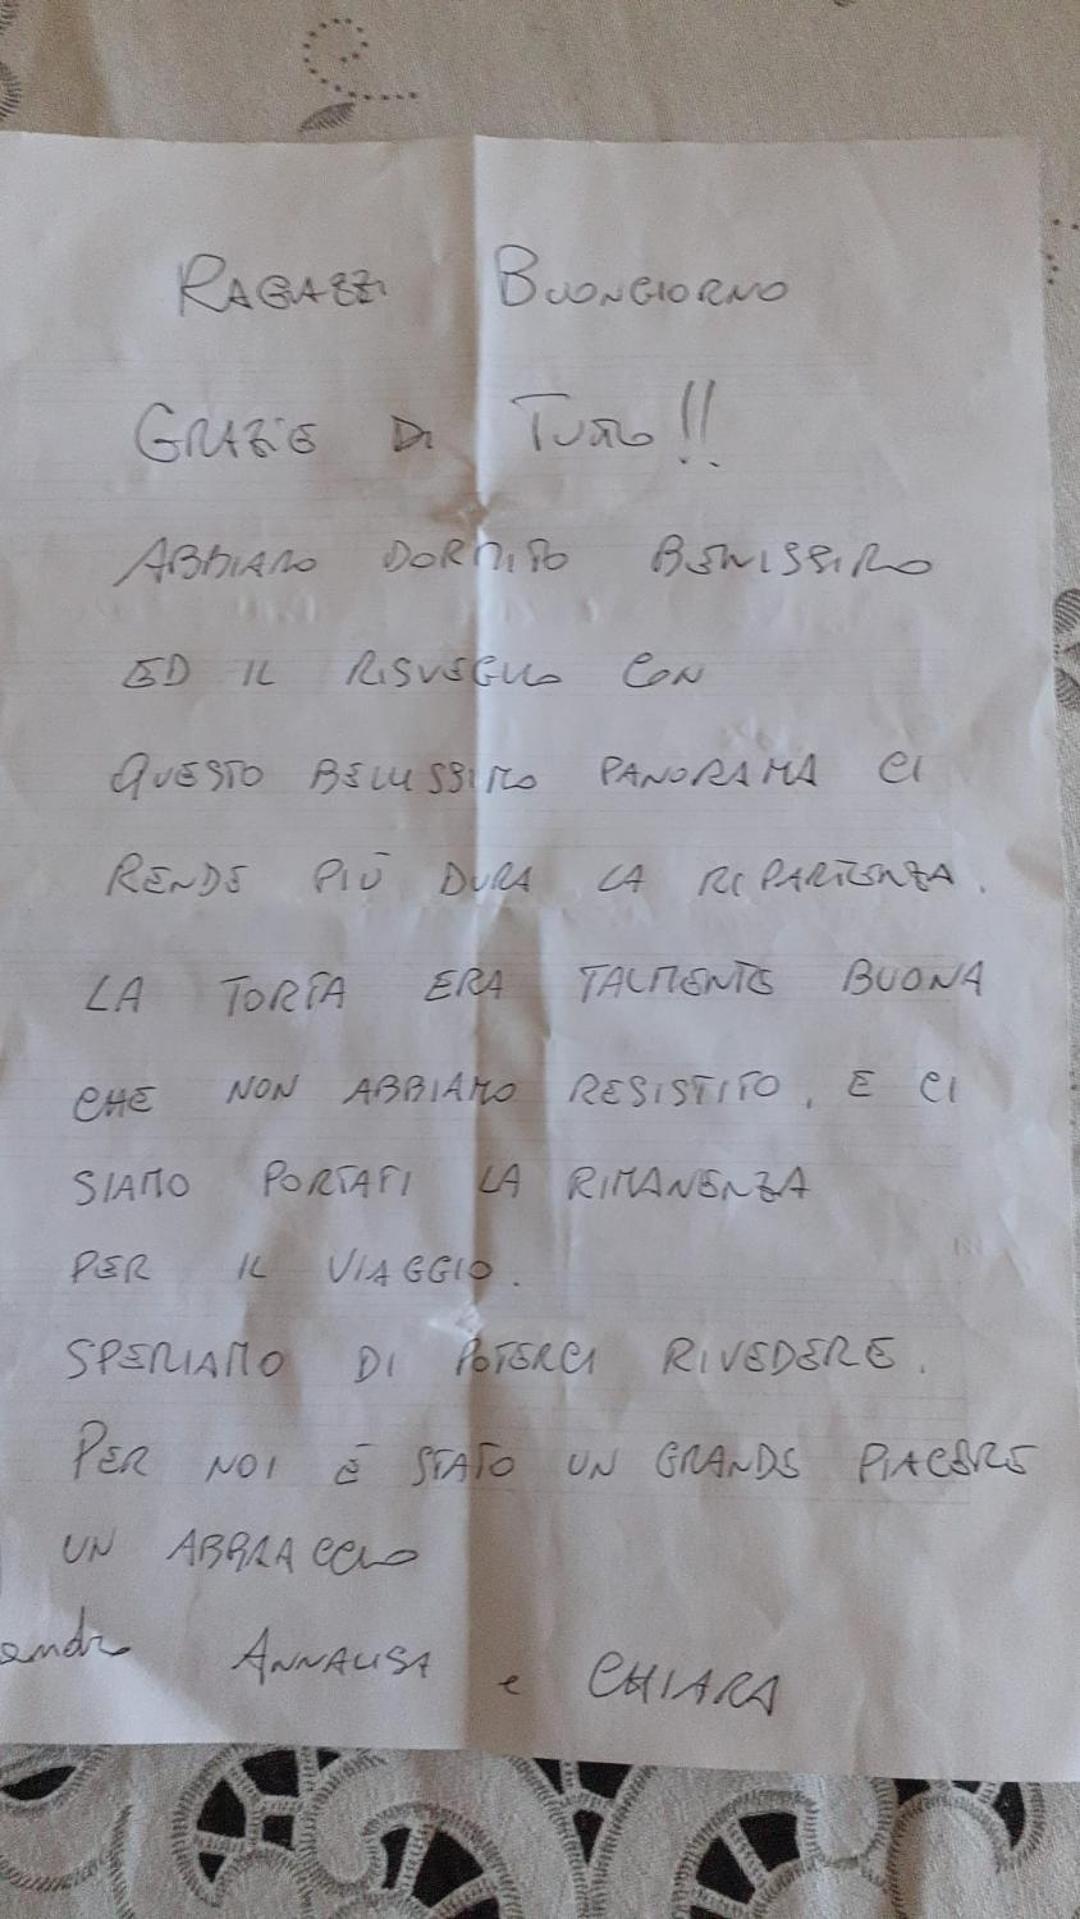 RAGAZZI BUONGIORNO
GRAZIE DI TUTTO!!
ABBIAMO DORMITO BENISSIMO
ED IL RISVEGLIO CON
QUESTO BELLISSIMO PANORAMA CI
RENDE PIÙ DURA LA RIPARTENZA.
LA TORTA ERA TALMENTE BUONA
CHE NON ABBIAMO RESISTITO, E CI
SIAMO PORTATI LA RIMANENZA
PER IL VIAGGIO.
SPERIAMO DI POTERCI RIVEDERE.
PER NOI È STATO UN GRANDE PIACERE
UN ABBRACCIO
ANNALISA e CHIARA